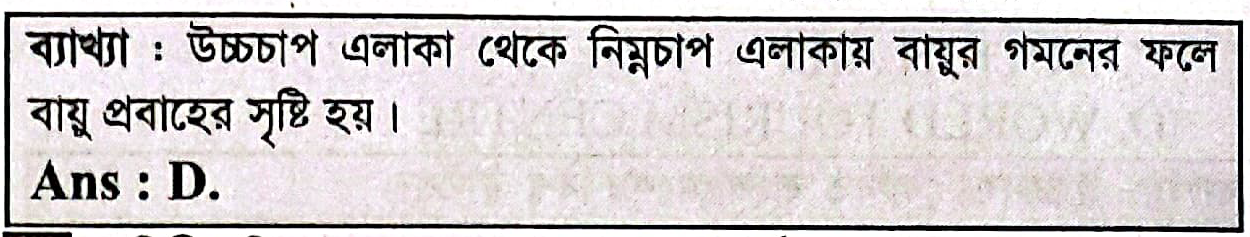 ব্যাখ্যা : উচ্চচাপ এলাকা থেকে নিম্নচাপ এলাকায় বায়ুর গমনের ফলে
বায়ু প্রবাহের সৃষ্টি হয়।
Ans : D.